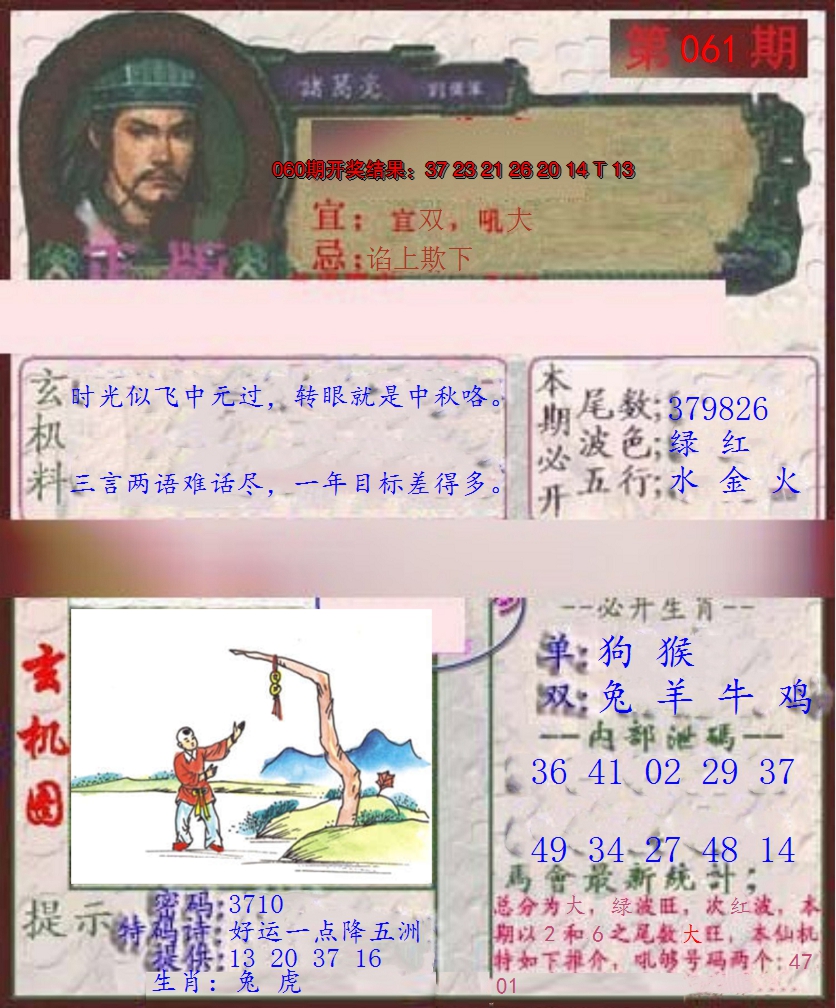 第 061 期
諸葛亮
060期开奖结果：37 23 21 26 20 14 T 13
宜：宜双，吼大
忌：谄上欺下
正版
玄机料
时光似飞中元过，转眼就是中秋咯。
三言两语难话尽，一年目标差得多。
本期必开
尾数;379826
波色;绿 红
五行;水 金 火
玄机图
--必开生肖--
单:狗 猴
双:兔 羊 牛 鸡
--内部泄碼--
36 41 02 29 37
49 34 27 48 14
馬會最新统計;
总分为大，绿波旺，次红波，本
期以2和6之尾数大旺，本仙机
特如下推介，吼够号码两个:47
01
提示
密码:3710
特码诗:好运一点降五洲
提供:13 20 37 16
生肖：兔 虎